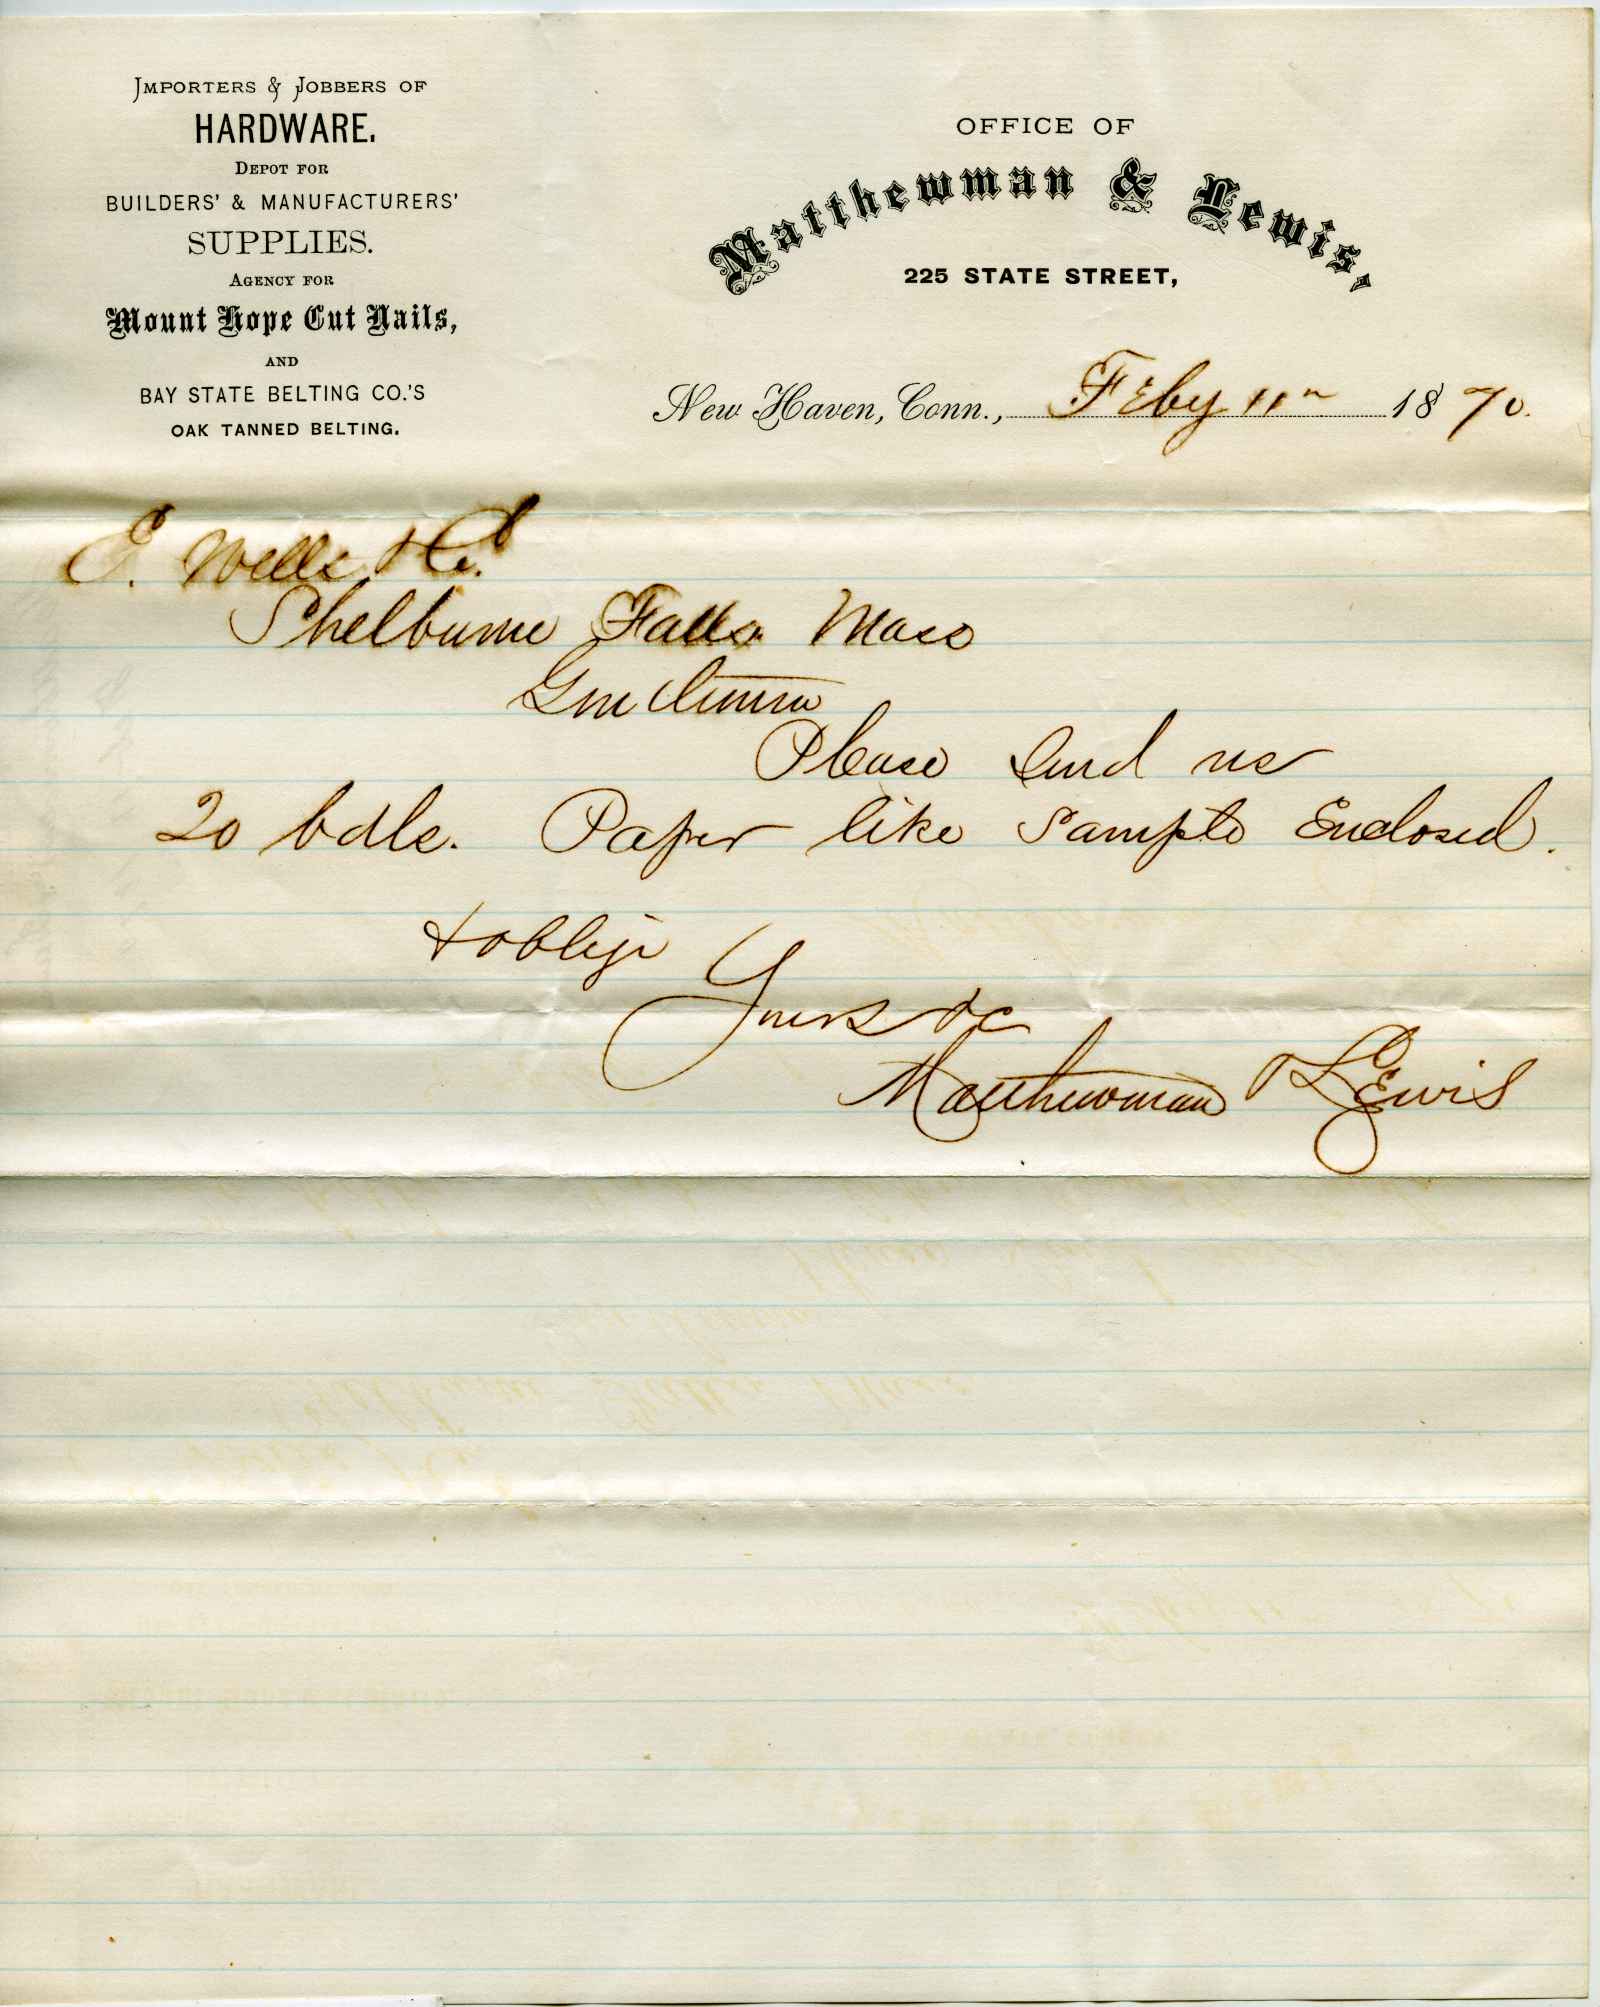 IMPORTERS & JOBBERS OF
HARDWARE.
DEPOT FOR
BUILDERS' & MANUFACTURERS'
SUPPLIES.
AGENCY FOR
Mount Hope Cut Nails,
AND
BAY STATE BELTING CO.'S
OAK TANNED BELTING.
OFFICE OF
Matthewman & Lewis,
225 STATE STREET,
New Haven, Conn., Feby 11th 1870.
E. Wells & Co.
Shelburne Falls Mass
Gentlemen
Please send us
20 bdls. Paper like Sample Enclosed.
& oblige
Yours &c
Matthewman & Lewis